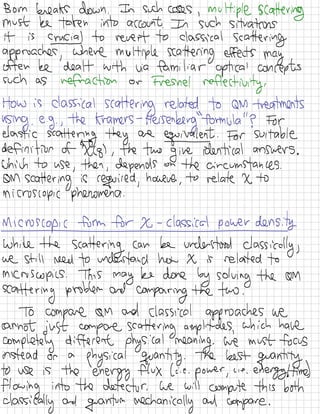 Born breaks down. In such cases, multiple scattering
must be taken into account. In such situations
it is crucial to revert to classical scattering
approaches, where multiple scattering effects may
often be dealt with via familiar optical concepts
such as refraction or Fresnel reflectivity.
How is classical scattering related to QM treatments
using, e.g., the Kramers-Heisenberg "formula"? For
elastic scattering they are equivalent. For suitable
definition of χ(q), the two give identical answers.
Which to use, then, depends on the circumstances.
QM scattering is required, however, to relate χ to
microscopic phenomena.
Microscopic form for χ - classical power density
While the scattering can be understood classically,
we still need to understand how χ is related to
microscopics. This may be done by solving the QM
scattering problem and comparing the two.
To compare QM and classical approaches we
cannot just compare scattering amplitudes, which have
completely different physical meaning. We must focus
instead on a physical quantity. The best quantity
to use is the energy flux (i.e. power, i.e. energy/time)
flowing into the detector. We will compute this both
classically and quantum mechanically and compare.